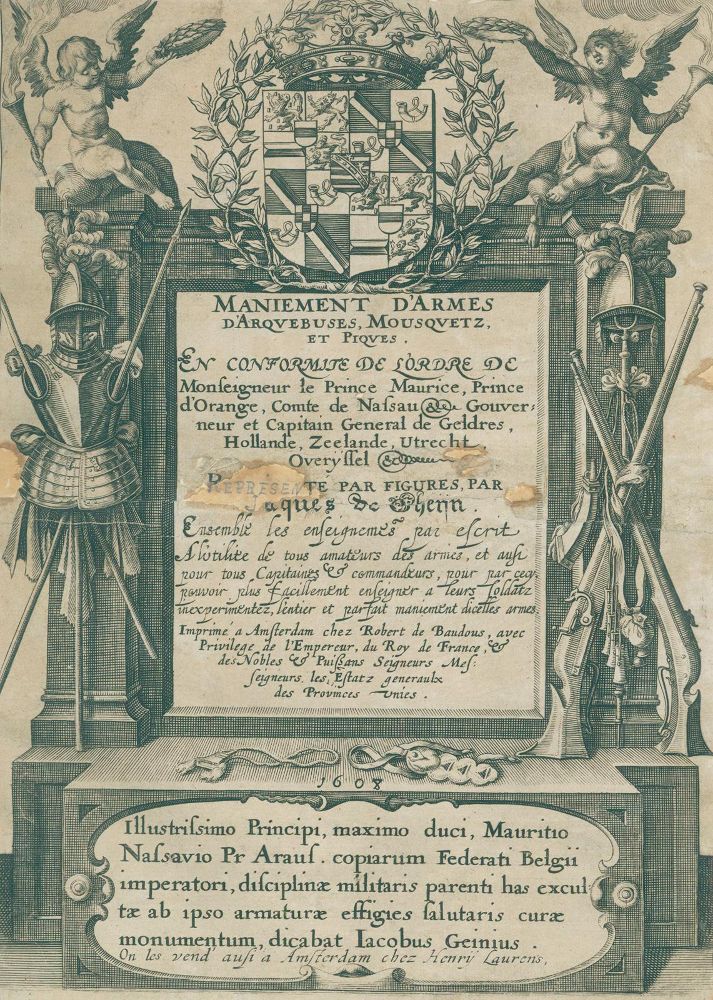 MANIEMENT D'ARMES
D'ARQVEBUSES, MOUSQVETZ,
ET PIQVES.
EN CONFORMITE DE L'ORDRE DE
Monſeigneur le Prince Maurice, Prince
d'Orange, Comte de Naſſau &c. Gouver-
neur et Capitain General de Geldres,
Hollande, Zeelande, Utrecht,
Overyſſel &c.
REPRESENTE PAR FIGURES, PAR
Jaques de Gheijn.
Enſemble les enſeignemēs par eſcrit
A l'utilite de tous amateurs des armes, et auſi
pour tous Capitaines & commandeurs, pour par cecy
pouvoir plus facillement enſeigner a leurs ſoldatz
inexperimentez, l'entier et parfait maniement d'icelles armes.
Imprimé a Amſterdam chez Robert de Baudous, avec
Privilege de l'Empereur, du Roy de France, &
des Nobles & Puiſſans Seigneurs Meſ:
ſeigneurs les Eſtatz generaulx
des Provinces Unies.
1608
Illustriſsimo Principi, maximo duci, Mauritio
Naſsavio Pr Arauſ. copiarum Federati Belgii
imperatori, diſciplinæ militaris parenti has excul
tæ ab ipso armaturæ effigies ſalutaris curæ
monumentum, dicabat Iacobus Geinius.
On les vend auſi a Amſterdam chez Henry Laurens,